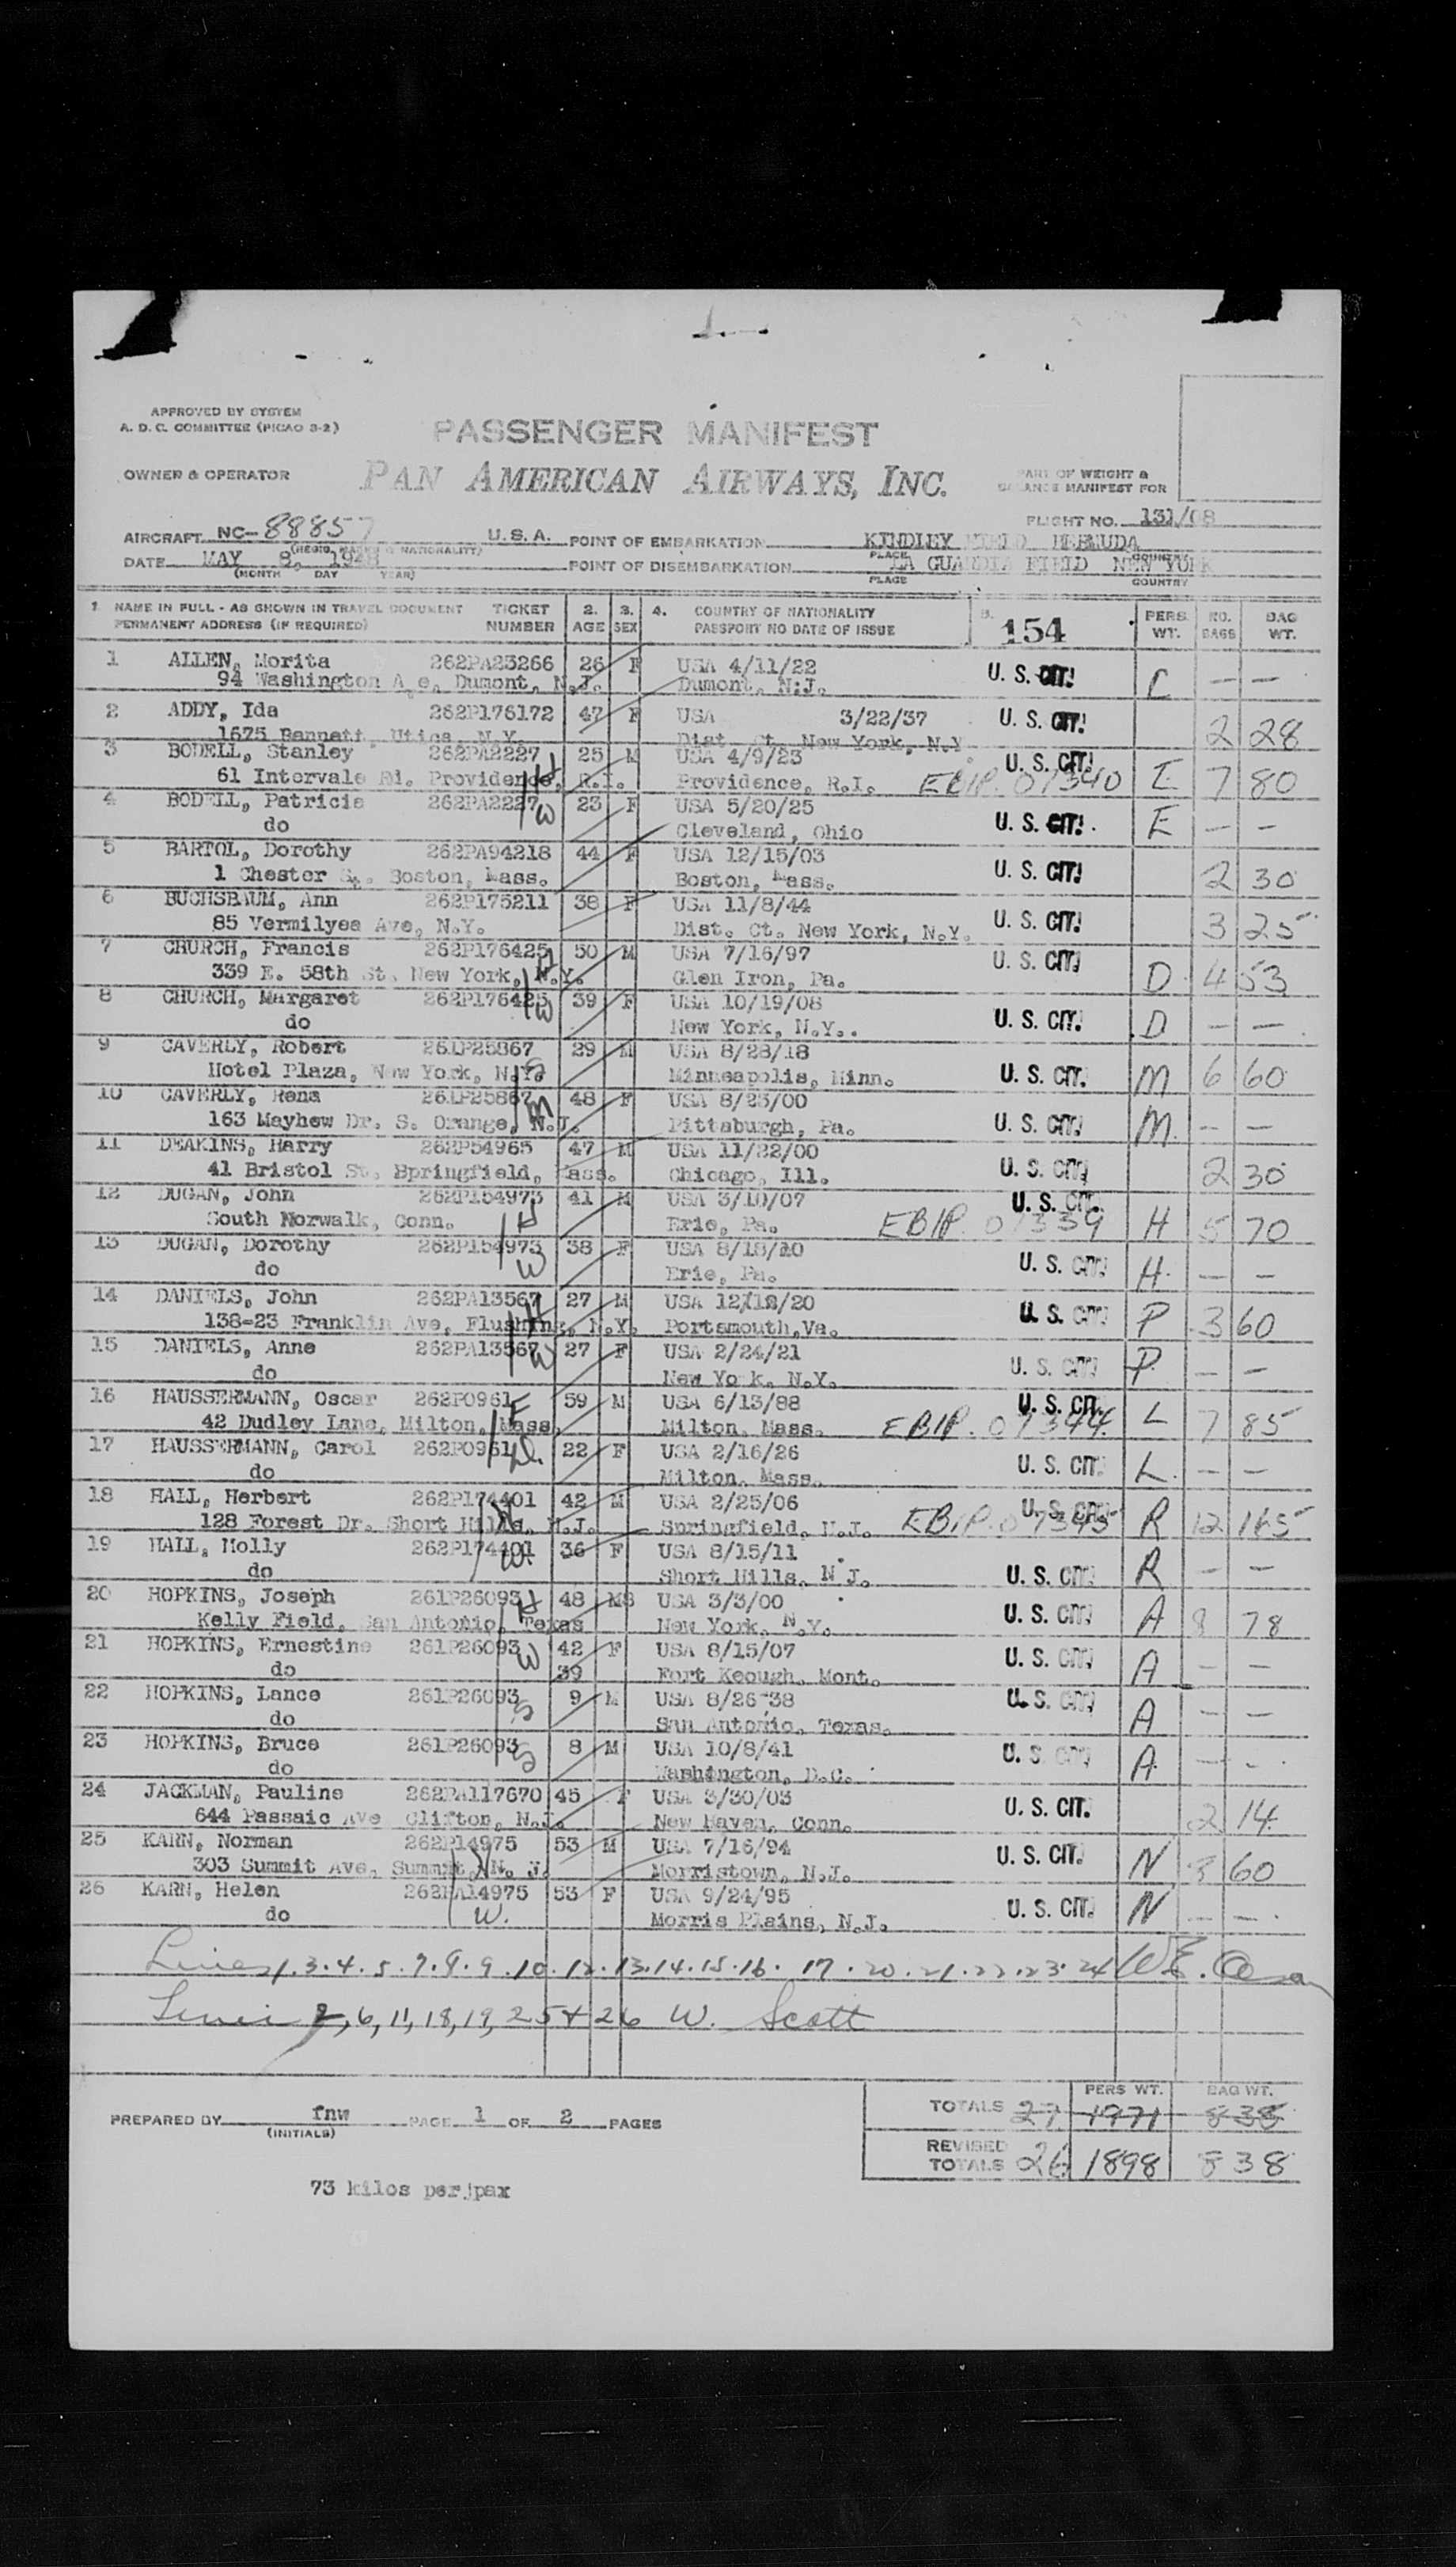 APPROVED BY SYSTEM
A. D. C. COMMITTEE (PICAO 3-2)
PASSENGER MANIFEST
OWNER & OPERATOR PAN AMERICAN AIRWAYS, INC.
PART OF WEIGHT &
BALANCE MANIFEST FOR
FLIGHT NO. 131/08
AIRCRAFT NC-88857 U.S.A. POINT OF EMBARKATION KINDLEY FIELD BERMUDA
PLACE COUNTRY
DATE MAY 8, 1948 POINT OF DISEMBARKATION LA GUARDIA FIELD NEW YORK
(MONTH DAY YEAR) PLACE COUNTRY
1. NAME IN FULL - AS SHOWN IN TRAVEL DOCUMENT TICKET 2. 3. 4. COUNTRY OF NATIONALITY 5. 154 PERS. NO. BAG
PERMANENT ADDRESS (IF REQUIRED) NUMBER AGE SEX PASSPORT NO DATE OF ISSUE WT. BAGS WT.
1 ALLEN, Morita 262PA23266 26 F USA 4/11/22 U. S. CIT. C — —
94 Washington Ave, Dumont, N.J. Dumont, N.J.
2 ADDY, Ida 262P176172 47 F USA 3/22/37 U. S. CIT. 2 28
1675 Bennett, Utica, N.Y. Dist. Ct. New York, N.Y
3 BODELL, Stanley 262PA2227 H 25 M USA 4/9/23 U. S. CIT.
61 Intervale Rd. Providence, R.I. Providence, R.I. EBIP. 07340 E 7 80
4 BODELL, Patricia 262PA2227 W 23 F USA 5/20/25 U. S. CIT. E — —
do Cleveland, Ohio
5 BARTOL, Dorothy 262PA94218 44 F USA 12/15/03 U. S. CIT. 2 30
1 Chester Boston, Mass. Boston, Mass.
6 BUCHSBAUM, Ann 262P175211 38 F USA 11/8/44 U. S. CIT. 3 25
85 Vermilyea Ave, N.Y. Dist. Ct. New York, N.Y.
7 CHURCH, Francis 262P176425 H 50 M USA 7/16/97 U. S. CIT. D 4 53
339 E. 58th St. New York, N.Y. Glen Iron, Pa.
8 CHURCH, Margaret 262P176425 W 39 F USA 10/19/08 U. S. CIT. D — —
do New York, N.Y..
9 CAVERLY, Robert 261P25867 S 29 M USA 8/28/18 U. S. CIT. M 6 60
Hotel Plaza, New York, N.Y. Minneapolis, Minn.
10 CAVERLY, Rena 261P25867 M 48 F USA 8/23/00 U. S. CIT. M — —
163 Mayhew Dr. S. Orange, N.J. Pittsburgh, Pa.
11 DEAKINS, Harry 262P54965 47 M USA 11/22/00 U. S. CIT. 2 30
41 Bristol St. Springfield, Mass. Chicago, Ill.
12 DUGAN, John 262P154973 H 41 M USA 3/10/07 U. S. CIT.
South Norwalk, Conn. Erie, Pa. EBIP. 07339 H 5 70
13 DUGAN, Dorothy 262P154973 W 38 F USA 8/18/10 U. S. CIT. H — —
do Erie, Pa.
14 DANIELS, John 262PA13567 H 27 M USA 12/18/20 U. S. CIT. P 3 60
138-23 Franklin Ave, Flushing, N.Y. Portsmouth, Va.
15 DANIELS, Anne 262PA13567 W 27 F USA 2/24/21 U. S. CIT. P — —
do New York, N.Y.
16 HAUSSERMANN, Oscar 262P0961 F 59 M USA 6/13/88 U. S. CIT.
42 Dudley Lane, Milton, Mass. Milton, Mass. EBIP. 07344 L 7 85
17 HAUSSERMANN, Carol 262P0961 22 F USA 2/16/26 U. S. CIT. L — —
do Milton, Mass.
18 HALL, Herbert 262P174401 H 42 M USA 2/25/06 U. S. CIT.
128 Forest Dr. Short Hills, N.J. Springfield, N.J. EBIP. 07345 R 12 165
19 HALL, Molly 262P174401 W 36 F USA 8/15/11 U. S. CIT. R — —
do Short Hills, N.J.
20 HOPKINS, Joseph 261P26093 H 48 M USA 3/3/00 U. S. CIT. A 8 78
Kelly Field, San Antonio, Texas New York, N.Y.
21 HOPKINS, Ernestine 261P26093 W 42 F USA 8/15/07 U. S. CIT. A — —
do 39 Fort Keough, Mont.
22 HOPKINS, Lance 261P26093 S 9 M USA 8/26/38 U. S. CIT. A — —
do San Antonio, Texas.
23 HOPKINS, Bruce 261P26093 S 8 M USA 10/8/41 U. S. CIT. A — —
do Washington, D.C.
24 JACKMAN, Pauline 262PA117670 45 F USA 3/30/03 U. S. CIT. 2 14
644 Passaic Ave Clifton, N.J. New Haven, Conn.
25 KARN, Norman 262P14975 53 M USA 7/16/94 U. S. CIT. N 3 60
303 Summit Ave, Summit, N. J. Morristown, N.J.
26 KARN, Helen 262PA14975 W. 53 F USA 9/24/95 U. S. CIT. N — —
do Morris Plains, N.J.
Lines 1. 3. 4. 5. 7. 8. 9. 10. 12. 13. 14. 15. 16. 17. 20. 21. 22. 23. 24
Lines 2, 6, 11, 18, 19, 25 + 26 W. Scott
PERS WT. BAG WT.
TOTALS 27 1971 838
PREPARED BY fnw PAGE 1 OF 2 PAGES
(INITIALS)
REVISED
TOTALS 26 1898 838
73 kilos per pax